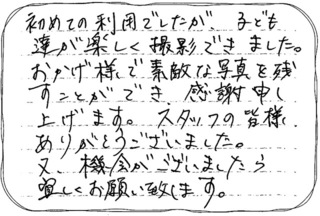 初めての利用でしたが、子ども
達が楽しく撮影できました。
おかげ様で素敵な写真を残
すことができ感謝申し
上げます。スタッフの皆様
ありがとうございました。
又、機会がございましたら
宜しくお願い致します。